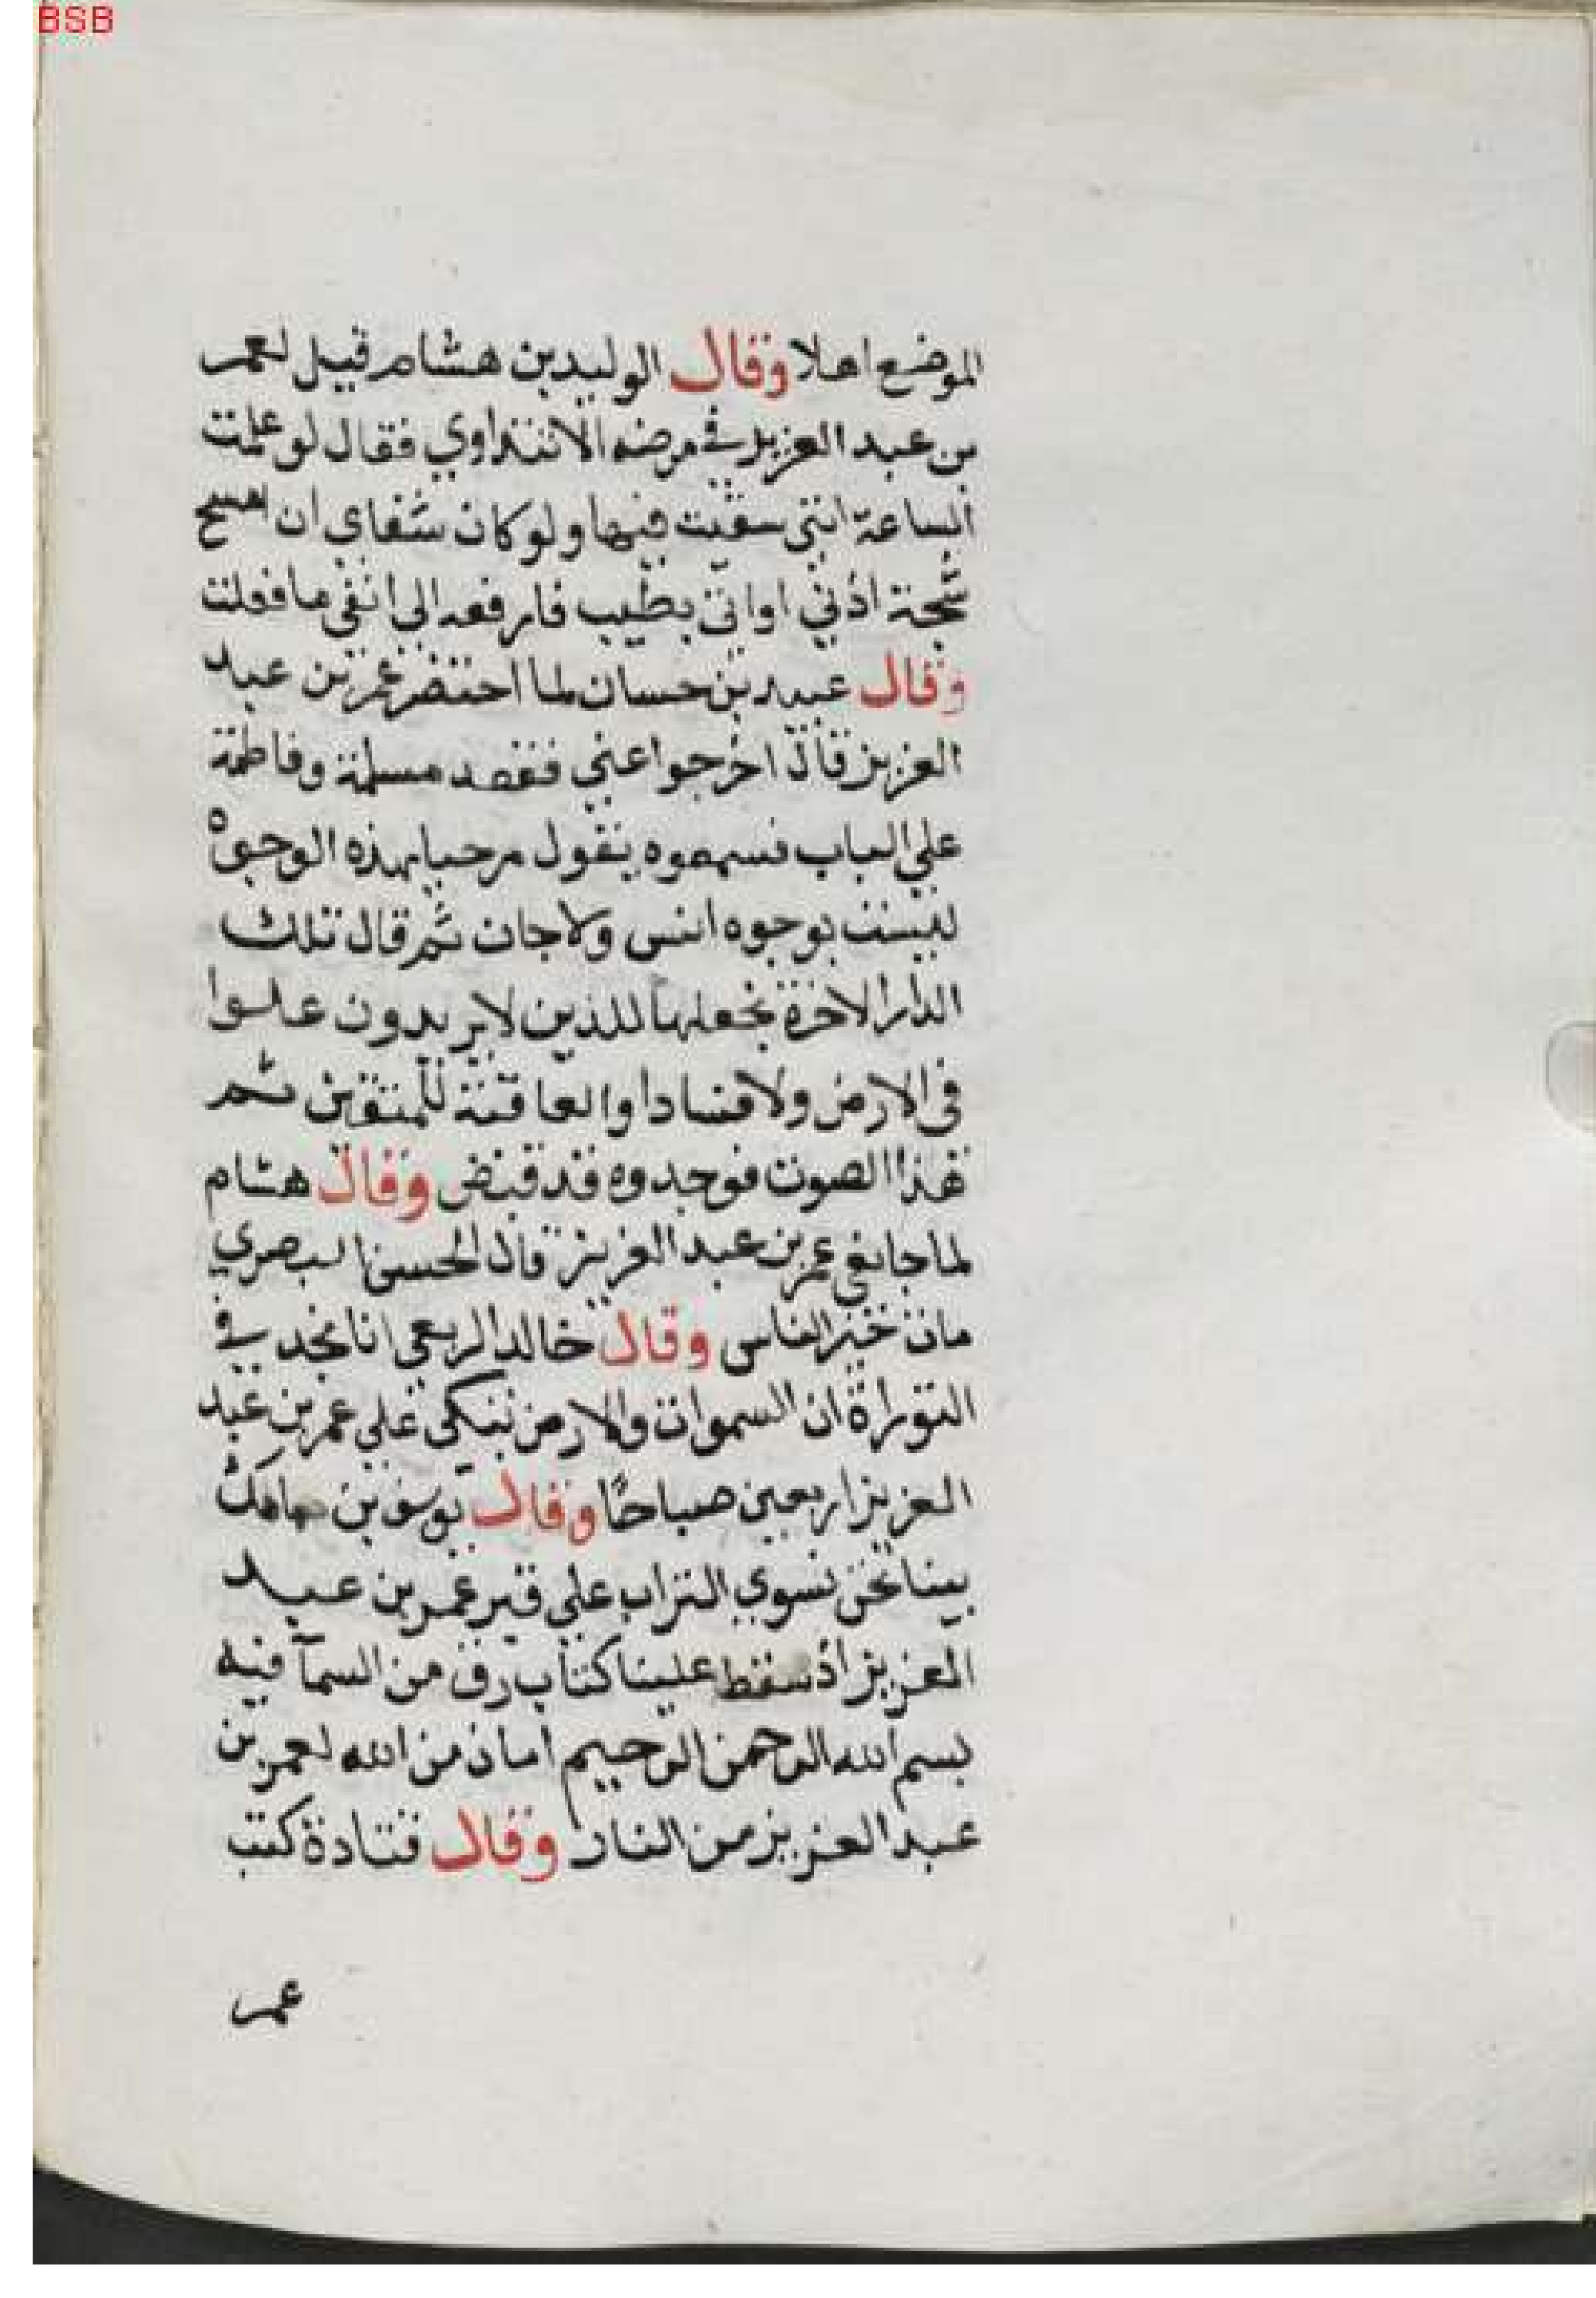 BSB
الموضع اهلا وقال الوليد بن هشام قيل لعمر
بن عبد العزيز في مرضه الا تتداوي فقال لو علمت
الساعة التي سقيت فيها ولو كان شفاي ان امسح
شحمة اذني او اتي بطيب فارفعه الي انفي ما فعلت
وقال عبيد بن حسان لما احتضر عمر بن عبد
العزيز قال اخرجوا عني فقعد مسلمة وفاطمة
علي الباب فسمعوه يقول مرحبا بهذه الوجوه
ليست بوجوه انس ولا جان ثم قال تلك
الدار الاخرة نجعلها للذين لا يريدون علوا
في الارض ولا فسادا والعاقبة للمتقين ثم
هذا الصوت فوجدوه قد قبض وقال هشام
لما جا نعي عمر بن عبد العزيز قال الحسن البصري
مات خير الناس وقال خالد الربعي انا نجد في
التوراة ان السموات والارض تبكي علي عمر بن عبد
العزيز اربعين صباحًا وقال يوسف بن ماهك
بينا نحن نسوي التراب علي قبر عمر بن عبد
العزيز اذ سقط علينا كتاب رق من السمآ فيه
بسم الله الرحمن الرحيم امان من الله لعمر بن
عبد العزيز من النار وقال قتادة كتب
عمر